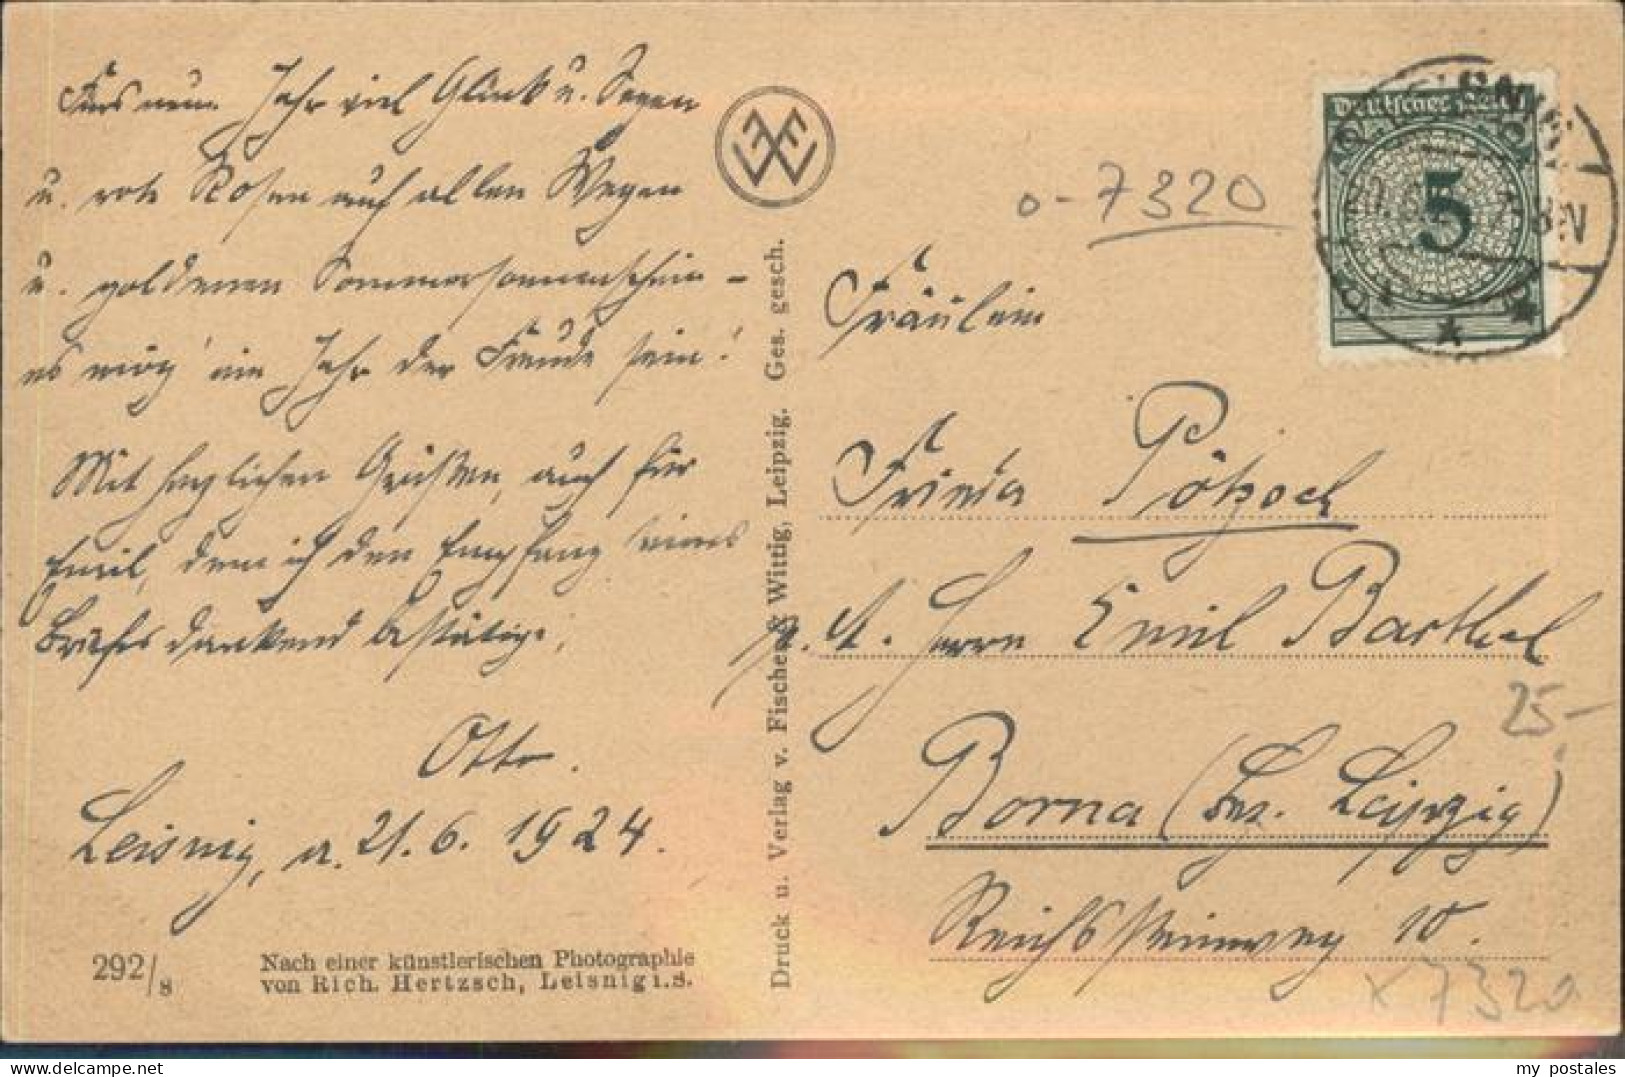 Fürs neue Jahr viel Glück u. Segen
u. rote Rosen auf allen Wegen
u. goldenen Sommersonnenschein –
es mög' ein Jahr der Freude sein!
Mit herzlichen Grüßen, auch für
Emil, dem ich den Empfang seines
Briefes dankend bestätige,
Otto.
Leisnig, a. 21. 6. 1924.
292/8
Nach einer künstlerischen Photographie
von Rich. Hertzsch, Leisnig i. S.
Druck u. Verlag v. Fischer & Wittig, Leipzig. Ges. gesch.
o-7320
Deutsches Reich
5
8-N
Fräulein
Frieda Pötzsch
p. A. Herrn Emil Barthel
25-
Borna (Bez. Leipzig)
Reichssteinweg 10.
x 7320
my postales